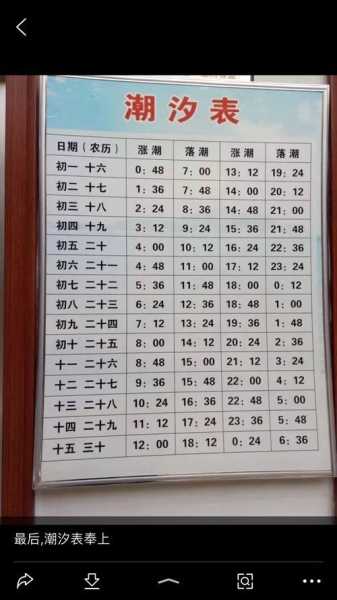 潮汐表
日期（农历） 涨潮 落潮 涨潮 落潮
初一 十六 0：48 7：00 13：12 19：24
初二 十七 1：36 7：48 14：00 20：12
初三 十八 2：24 8：36 14：48 21：00
初四 十九 3：12 9：24 15：36 21：48
初五 二十 4：00 10：12 16：24 22：36
初六 二十一 4：48 11：00 17：12 23：24
初七 二十二 5：36 11：48 18：00 0：12
初八 二十三 6：24 12：36 18：48 1：00
初九 二十四 7：12 13：24 19：36 1：48
初十 二十五 8：00 14：12 20：24 2：36
十一 二十六 8：48 15：00 21：12 3：24
十二 二十七 9：36 15：48 22：00 4：12
十三 二十八 10：24 16：36 22：48 5：00
十四 二十九 11：12 17：24 23：36 5：48
十五 三十 12：00 18：12 0：24 6：36
最后,潮汐表奉上